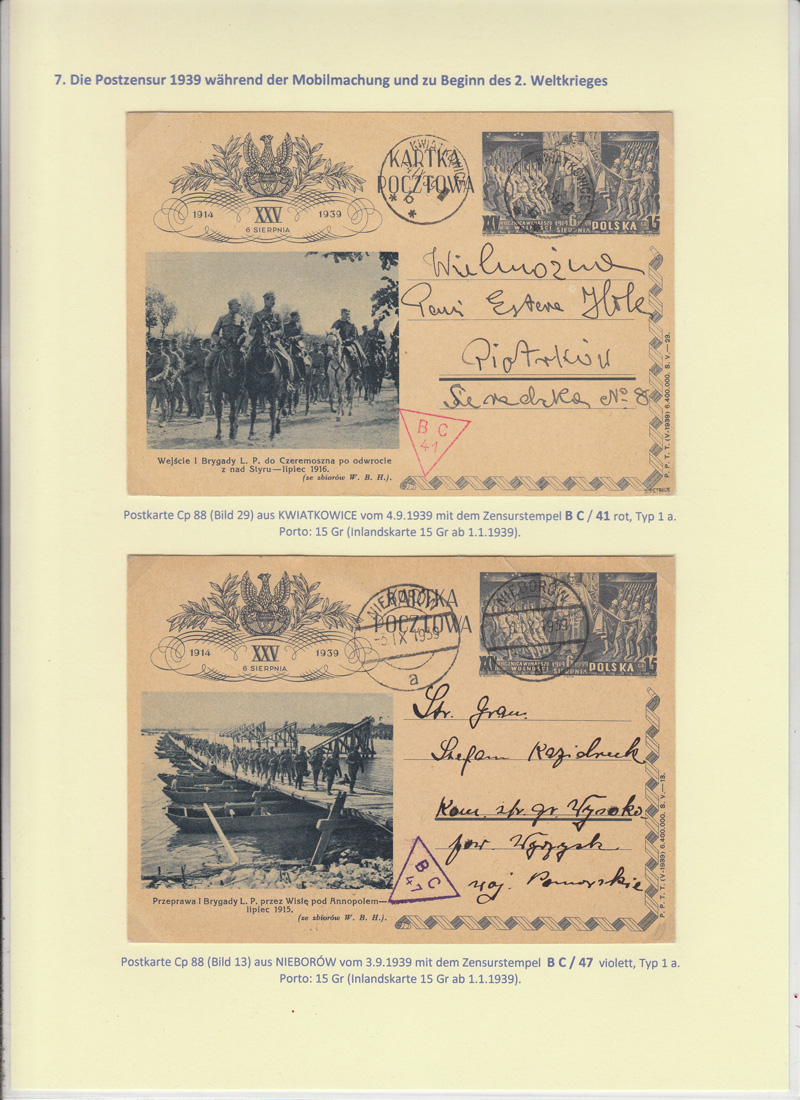 7. Die Postzensur 1939 während der Mobilmachung und zu Beginn des 2. Weltkrieges
KARTKA
POCZTOWA
KWIATKOWICE
1914 XXV 1939
6 SIERPNIA
POLSKA 15
Wielmożna
Pani Estera
Piotrków
Sieradzka No 8
B C
41
Wejście I Brygady L. P. do Czeremoszna po odwrocie
z nad Styru—lipiec 1916.
(ze zbiorów W. B. H.).
P. P. T. T. (V-1939) 6.400.000. S. V.—29.
Postkarte Cp 88 (Bild 29) aus KWIATKOWICE vom 4.9.1939 mit dem Zensurstempel B C / 41 rot, Typ 1 a.
Porto: 15 Gr (Inlandskarte 15 Gr ab 1.1.1939).
KARTKA
POCZTOWA
NIEBORÓW
IX 1939
a
NIEBORÓW
IX 1939
1914 XXV 1939
6 SIERPNIA
POLSKA 15
Str. Gran.
Stefan
Kom. str. gr. Wysoka
pow. Wyrzysk
woj. Pomorskie
B C
47
Przeprawa I Brygady L. P. przez Wisłę pod Annopolem—
lipiec 1915.
(ze zbiorów W. B. H.).
P. P. T. T. (V-1939) 6.400.000. S. V.—13.
Postkarte Cp 88 (Bild 13) aus NIEBORÓW vom 3.9.1939 mit dem Zensurstempel B C / 47 violett, Typ 1 a.
Porto: 15 Gr (Inlandskarte 15 Gr ab 1.1.1939).